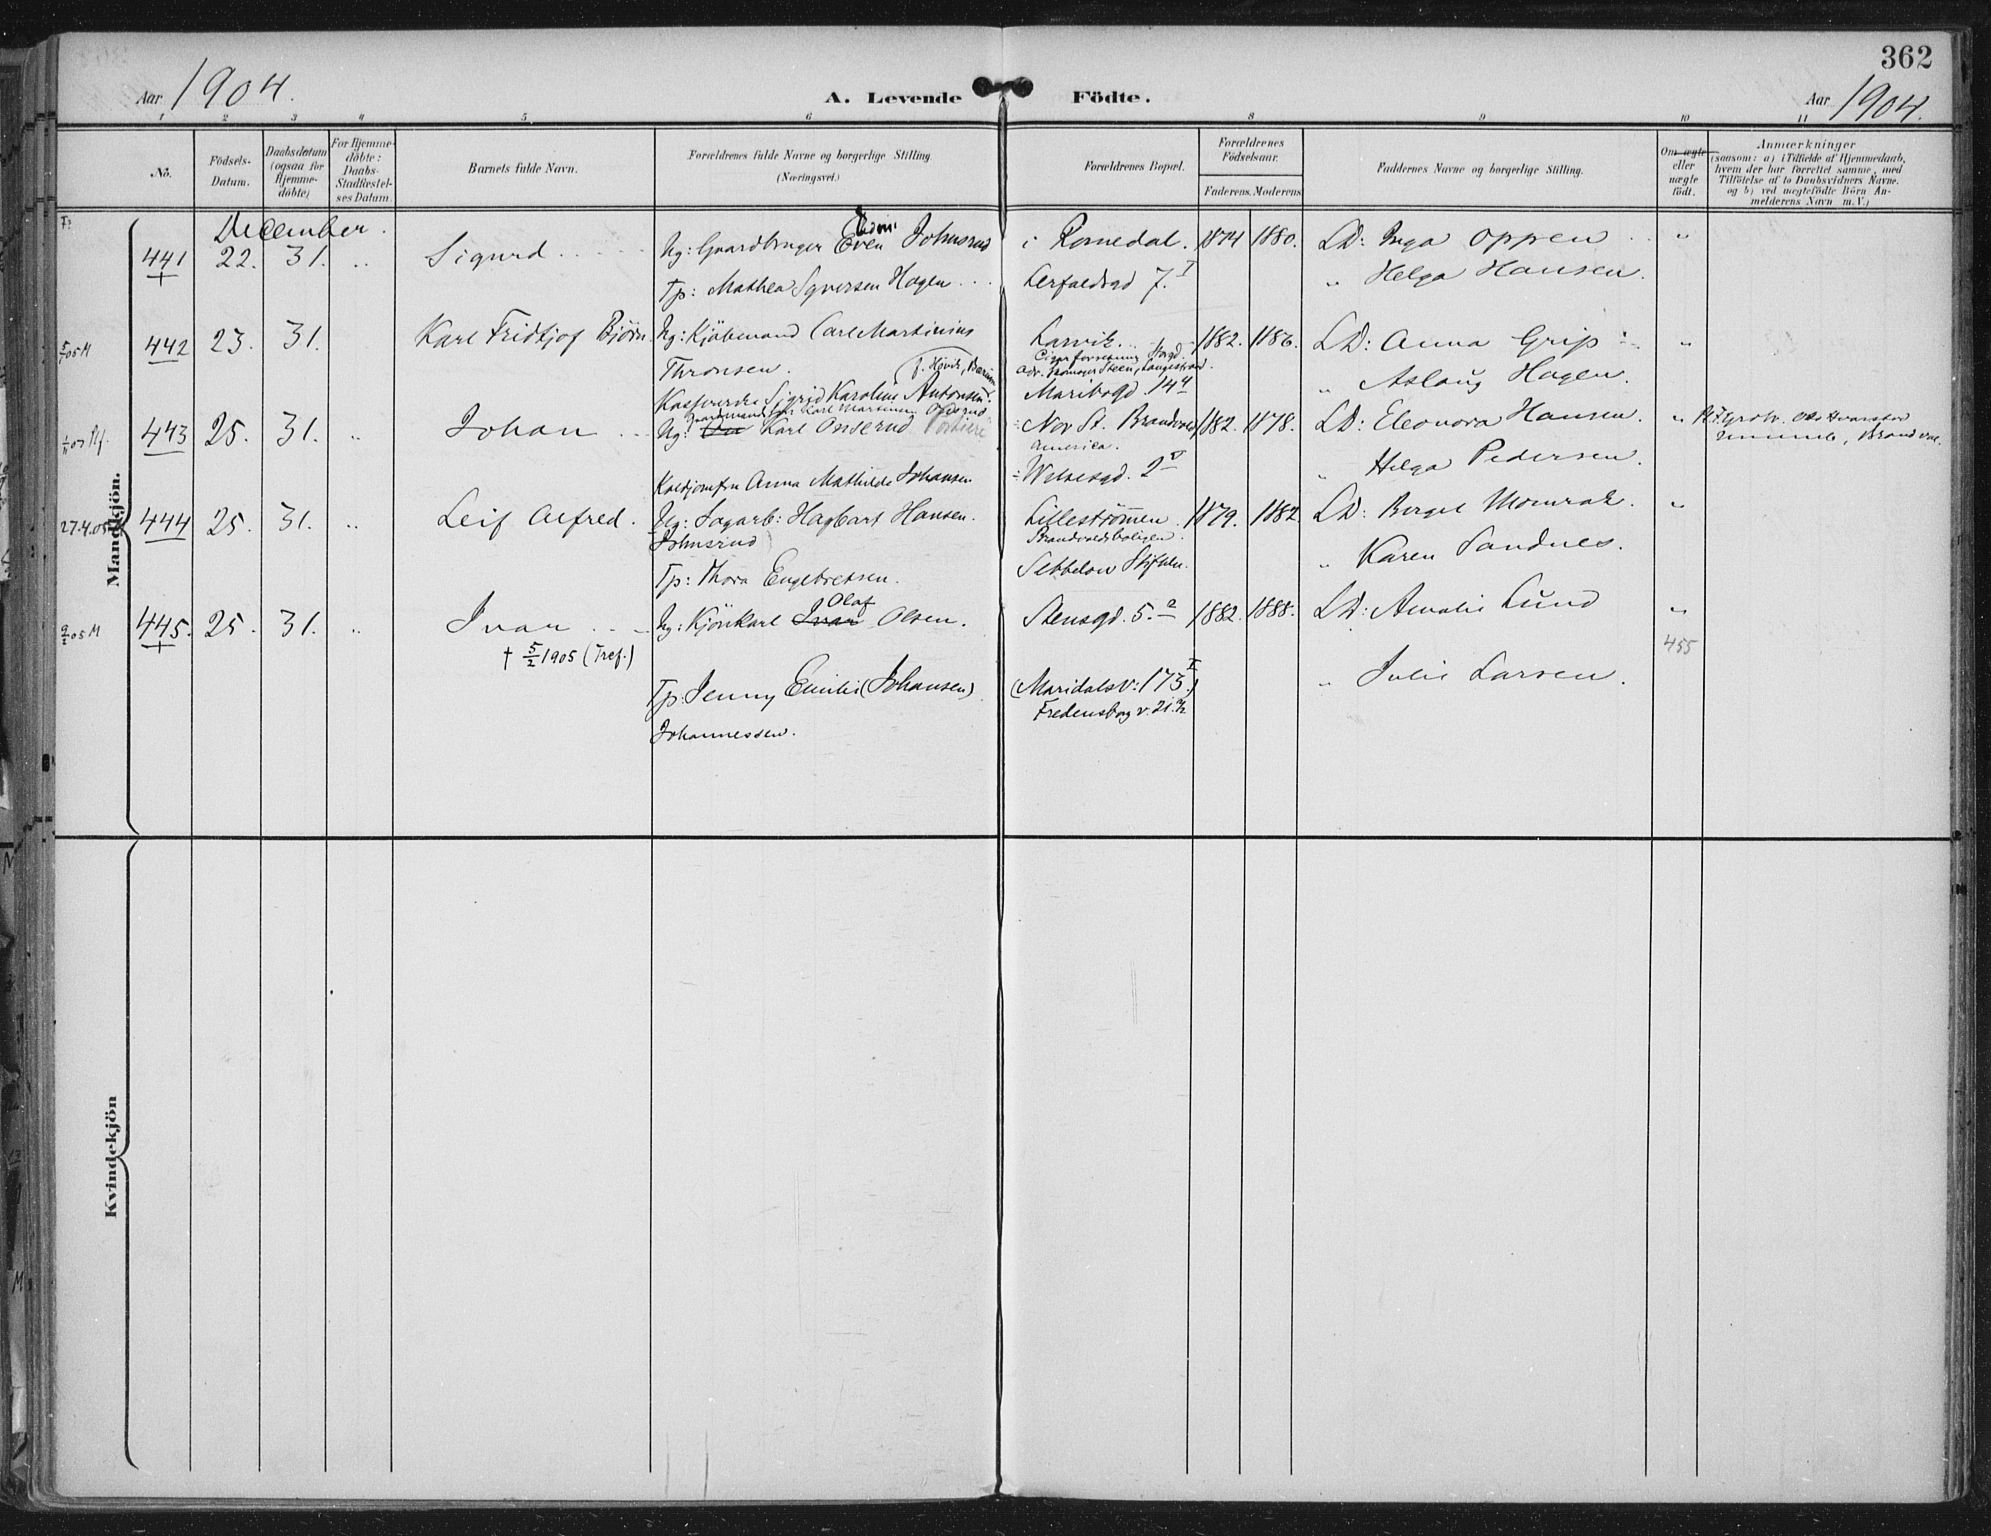 362
Aar 1904.
A. Levende Födte.
Aar 1904.
1 2 3 4 5 6 8 9 10 11
No.
Födsels-Datum.
Daabsdatum (ogsaa for Hjemme-döbte)
For Hjemme-döbte: Daabs-Stadfæstel-ses Datum.
Barnets fulde Navn.
Forældrenes fulde Navne og borgerlige Stilling.
(Næringsvei.)
Forældrenes Bopæl.
Forældrenes Födselsaar.
Faderens. Moderens.
Faddernes Navne og borgerlige Stilling.
Om ægte eller uægte födt.
Anmærkninger
(saasom: a) i Tilfælde af Hjemmedaab,
hvem der har forrettet samme, med
Tilföielse af to Daabsvidners Navne.
og b) ved uægtefödte Börn An-
melderens Navn m. V.)
Mandkjön.
December.
441 22. 31. „ Sigurd
Ug: Gaardbruger Even Johnsrud i Romedal. 1874 1880. LD: Inga Oppen „
Tp: Mathea Syversen Hagen Lerfaldsgd 7. I „ Helga Hansen.
5/1 05 M 442 23. 31. Karl Fridtjof Björn
Ug: Kjöbmand Carl Martinius Larvik. 1882. 1886. LD: Anna Grip „
Thronsen.
Sigrid Karoline Antonsen. Maribogd. 14 4 „ Aslaug Hagen.
443 25. 31. „ Johan
Ug: Karl Onserud Portier Nov St. Brandvold 1882. 1878. LD: Eleonora Hansen. „
America.
Anna Mathilde Johansen Welsesgd. 2 „ Helga Pedersen.
27.4.05 444 25. 31. „ Leif Alfred.
Ug: Sagarb: Hagbart Hansen. Lilleströmmen 1879. 1882 LD: Borgel Momrak. „
Johnsrud Brandvoldsboligen.
Tp: Thora Engebretsen. Sebbelow Stiftelse. „ Karen Sandnes.
9/2 05 M 445. 25. 31. „ Ivar
† 5/2 1905 (Tref.)
Olaf
Ug: Kjörekarl Ivar Olsen. Stensgd. 5. 2 1882. 1888. LD: Amalie Lund „
455
Tp: Jenny Emilie (Johansen) (Maridalsv: 175. I) „ Julie Larsen.
Fredensborg v. 21.
Johannessen.
Kvindekjön